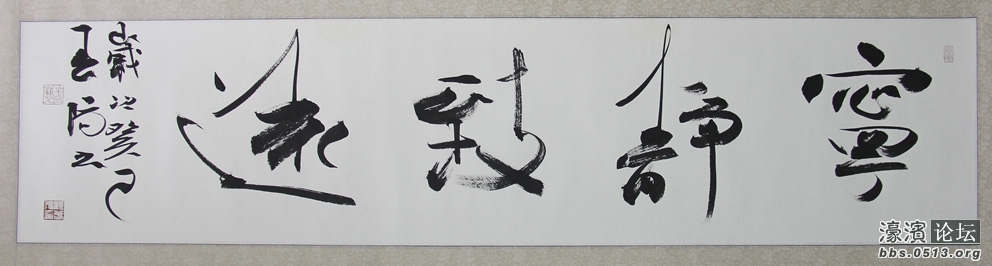 寧靜致遠
歲次癸巳
王
濠濱论坛
bbs.0513.org